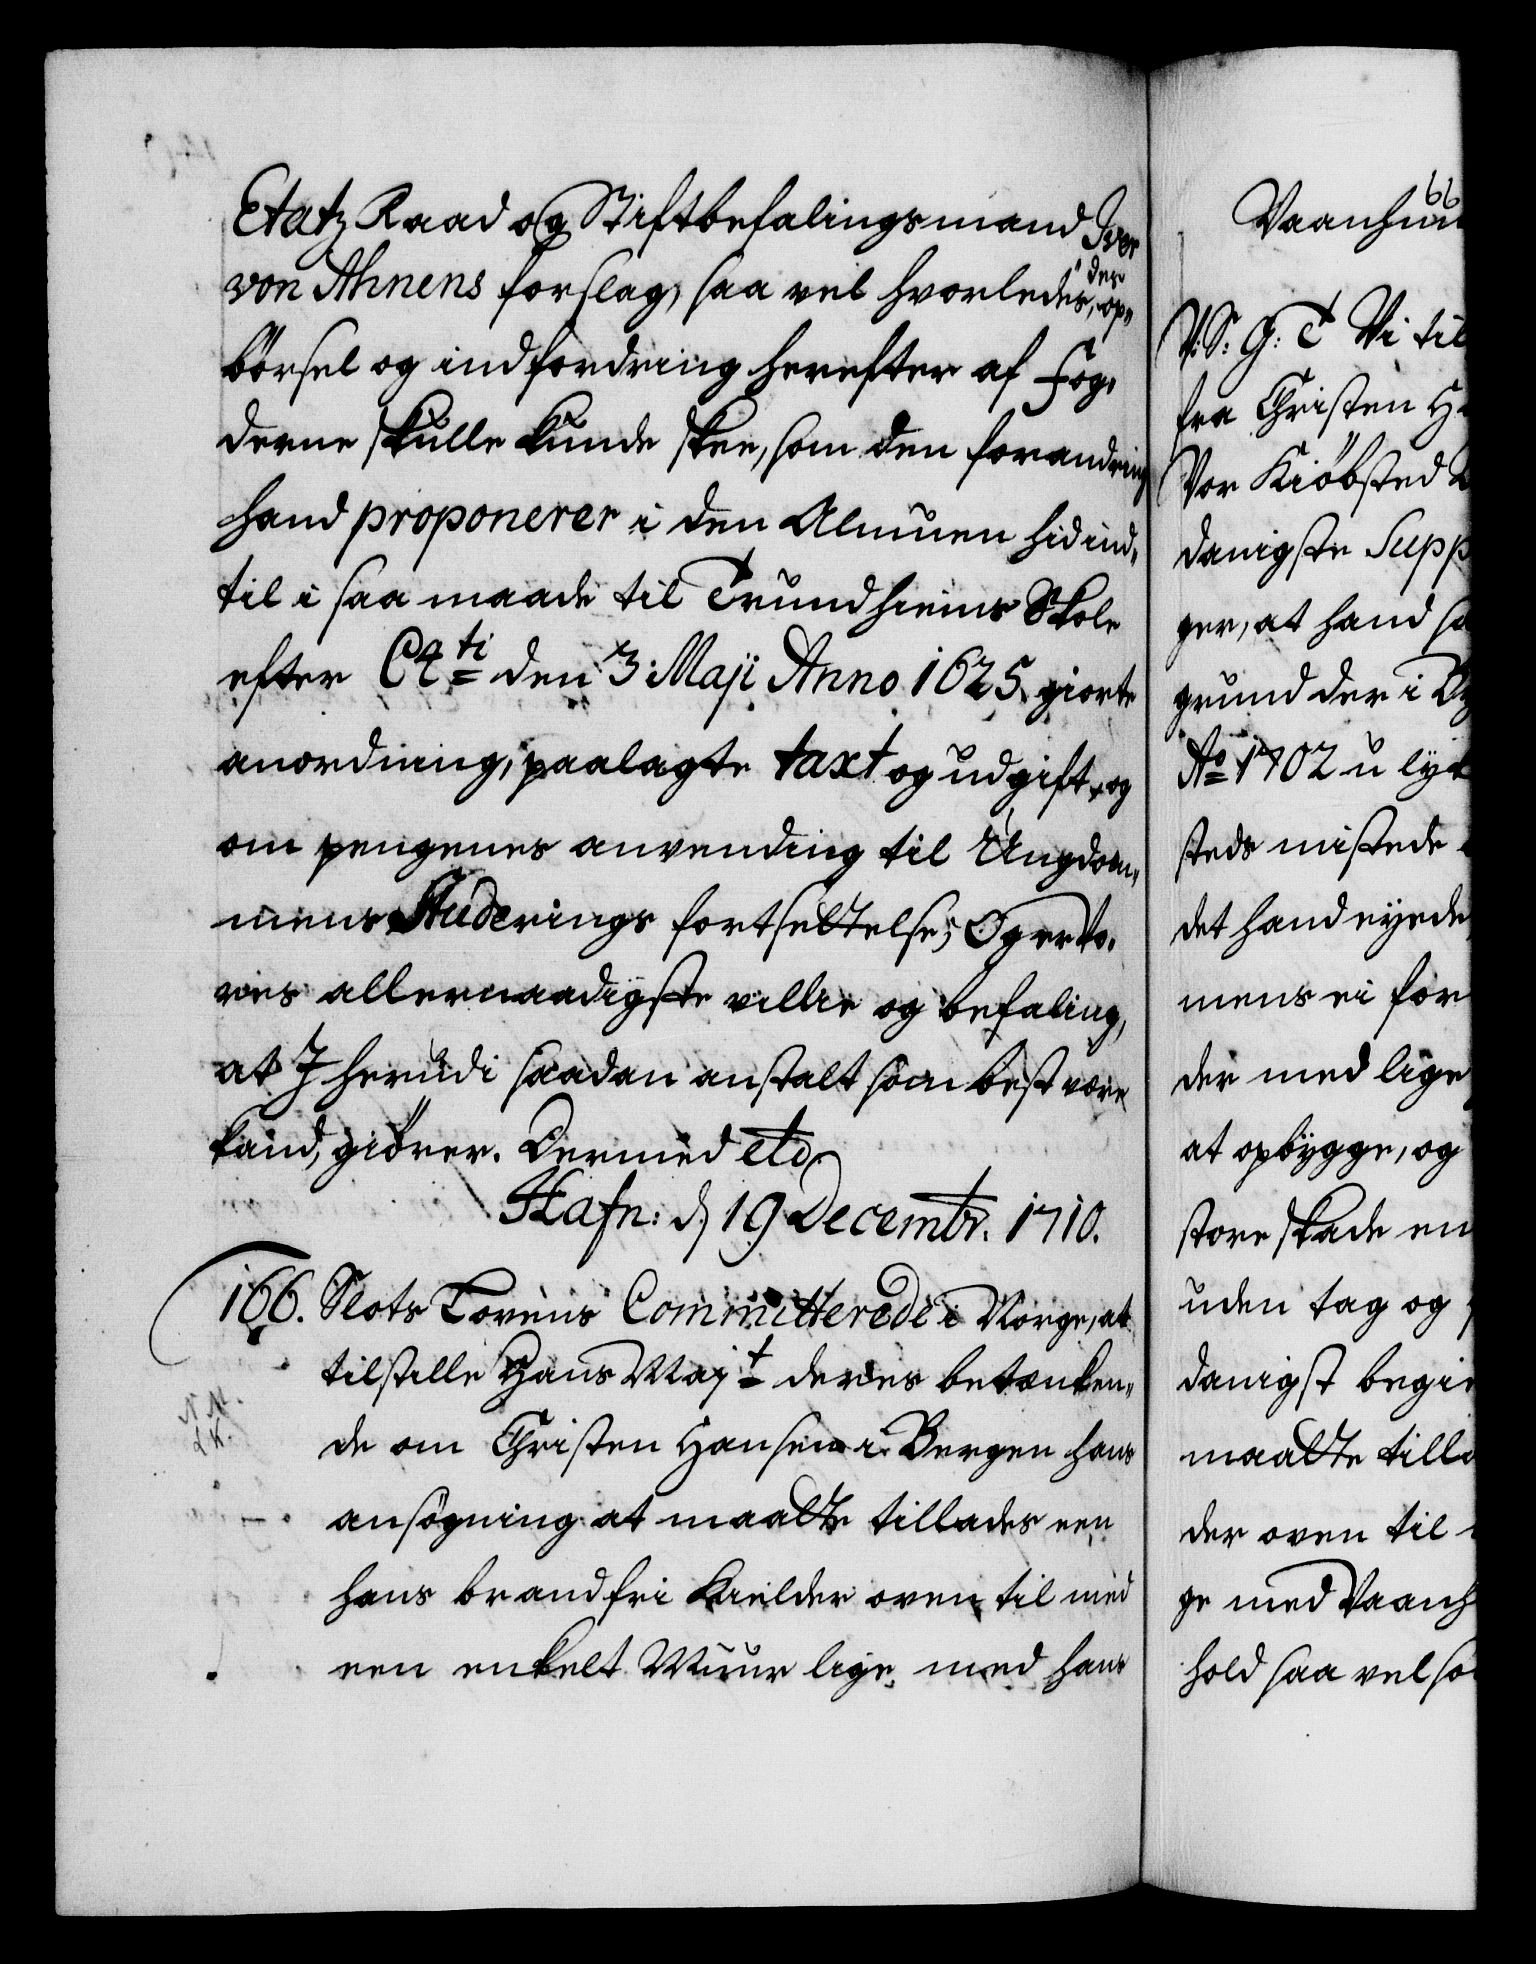 Etatz Raad og Stiftbefalingsmand Iver
von Ahnens forslag, saa vel hvorledes, des op-
börsel og indfordring herefter af Fog,
derne skulle kunde skee, som den forandring
hand proponerer i den Almuen hid ind-
til i saa maade til Trundhiems Skole
efter C4ti den 3 Maji Anno 1625 giorte
anordning, paalagte taxt og udgift, og
om pengenes anvending til Ungdom-
mens Studerings fortsettelse; Og er Vo-
res allernaadigste villie og befaling,
at I herudi saadan anstalt som best være
kand, giörer. Dermed etc
Hafn: d. 19 Decembr. 1710.
166. Slots Lovens Committerede i Norge, at
tilstille Hans Majt deres betænken-
de om Christen Hansen i Bergen hans
ansøgning at maatte tillades een
hans brandfri Kielder oven til med
een enkelt Muur lige med hans
N. N.
d K.
66
Vaanhuu
V: S: G: T Vi til
fra Christen H
Vor Kiöbsted
danigste Supp
ger, at hand ha
grund der i By
Ao 1702 u lyk
steds mistede
det hand eyede
mens ei for
der med lige
at opbygge, og
store skade en
uden tag og
danigst begie
maatte tilla
der oven til
ge med Vaanh
hold saa vel so